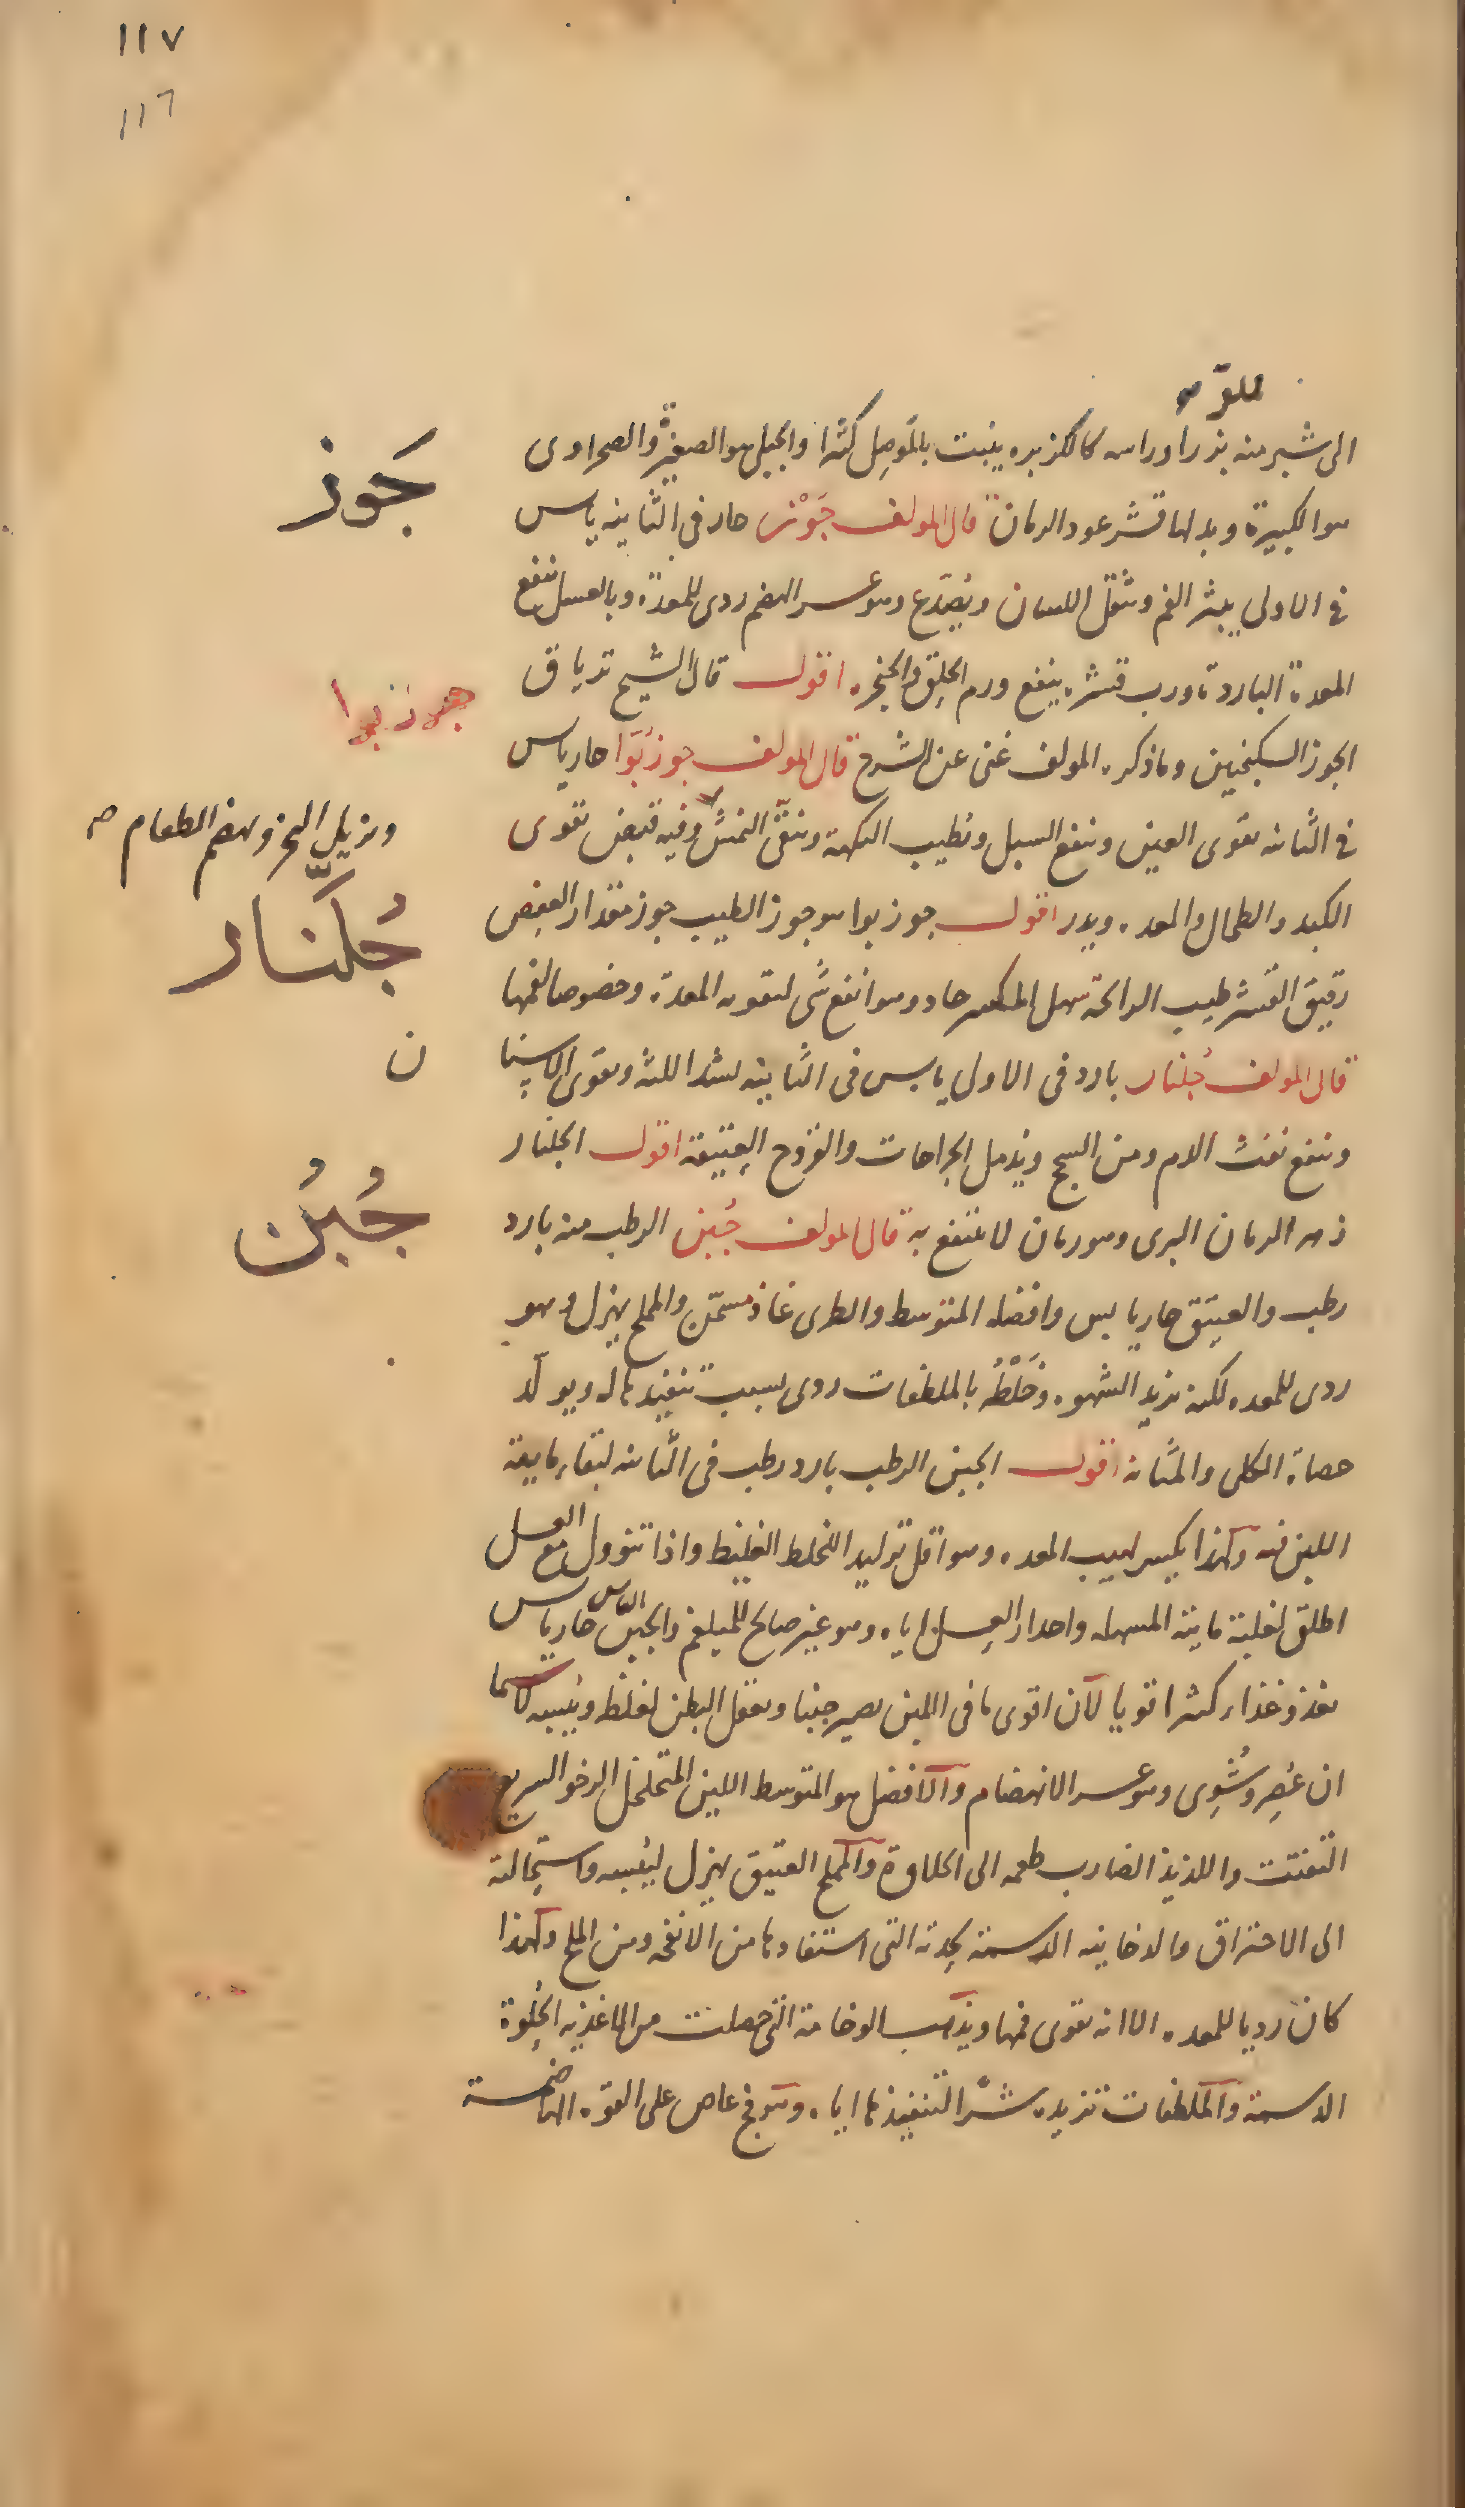 ١١٧
١١٦
الى شبر منه بزر اوراسه كالكزبره ينبت بالموصل كثيرا والجبلى هو الصغيرة والصحراوى
جَوز
هو الكبيرة وبدلها قشر عود الرمان قال المولف جَوْز حار فى الثانيه يابس
فى الاولى يبثر الفم ويثقل اللسان ويُصَدّع وهو عسر الهضم ردى للمعدة وبالعسل ينفع
المعدة الباردة ورب قشره ينفع ورم الحلق والحنجره اقول قال الشيخ ترياق
جوز بوا
الجوز السكنجبين وما ذكره المولف غنى عن الشرح قال المولف جوز بَوّا حار يابس
فى الثانيه يقوى العين وينفع السبل ويطيب النكهة وينقّى النمش وفيه قبض يقوى
ويزيل البخر ويهضم الطعام صح
الكبد والطحال والمعده ويدر اقول جوز بوا هو جوز الطيب جوز مقدار العفص
جُلّنار
رقيق القشر طيب الرائحة سهل المكسر حاد وهو انفع شى لتقويه المعدة وخصوصا لفمها
ن
قال المولف جُلنار بارد فى الاولى يابس فى الثانيه يشد اللثه ويقوى الاسنان
وينفع نفث الدم ومن السحج ويدمل الجراحات والقروح العتيقة اقول الجلنار
جُبُن
زهر الرمان البرى وهو رمان لا ينتفع به قال المولف جُبن الرطب منه بارد
رطب والعتيق حار يابس وافضله المتوسط والطرى غاذ مسمّن والمملح يهزل وهو
ردى للمعده لكنه يزيد الشهوه وخَلْطُه بالملطفات ردى بسبب تنفيذها له ويولّد
حصاة الكلى والمثانه اقول الجبن الرطب بارد رطب فى الثانيه لبقاء مايية
اللبن فيه ولهذا يكسر لهيب المعده وهو اقل توليدا للخلط الغليظ واذا تنوول مع العسل
اطلق لغلبة مائيته المسهله واحدار العسل اياه وهو غير صالح للمبلغم والجبن اليابس حار يابس
يغذو غذاء كثيرا قويا لان اقوى ما فى اللبن يصير جبنا ويعقل البطن لغلظه ويُبسه لا سيما
ان عُصِر وشُوِى وهو عسر الانهضام والافضل هو المتوسط اللين المتخلخل الرخو السريع
التفتت واللذيذ الضارب طعمه الى الحلاوة والمملح العتيق يهزل ليُبسه واستحالته
الى الاحتراق والدخانيه الدسمة بحدته التى استفادها من الانفحه ومن الملح ولهذا
كان رديا للمعده الا انه يقوى فمها ويذهب الوخامة التى حصلت من الاغذيه الحُلوة
الدسمة والملطفات تزيده شرّا لتنفيذها اياه وهو فج عاص على القوه الهاضمة